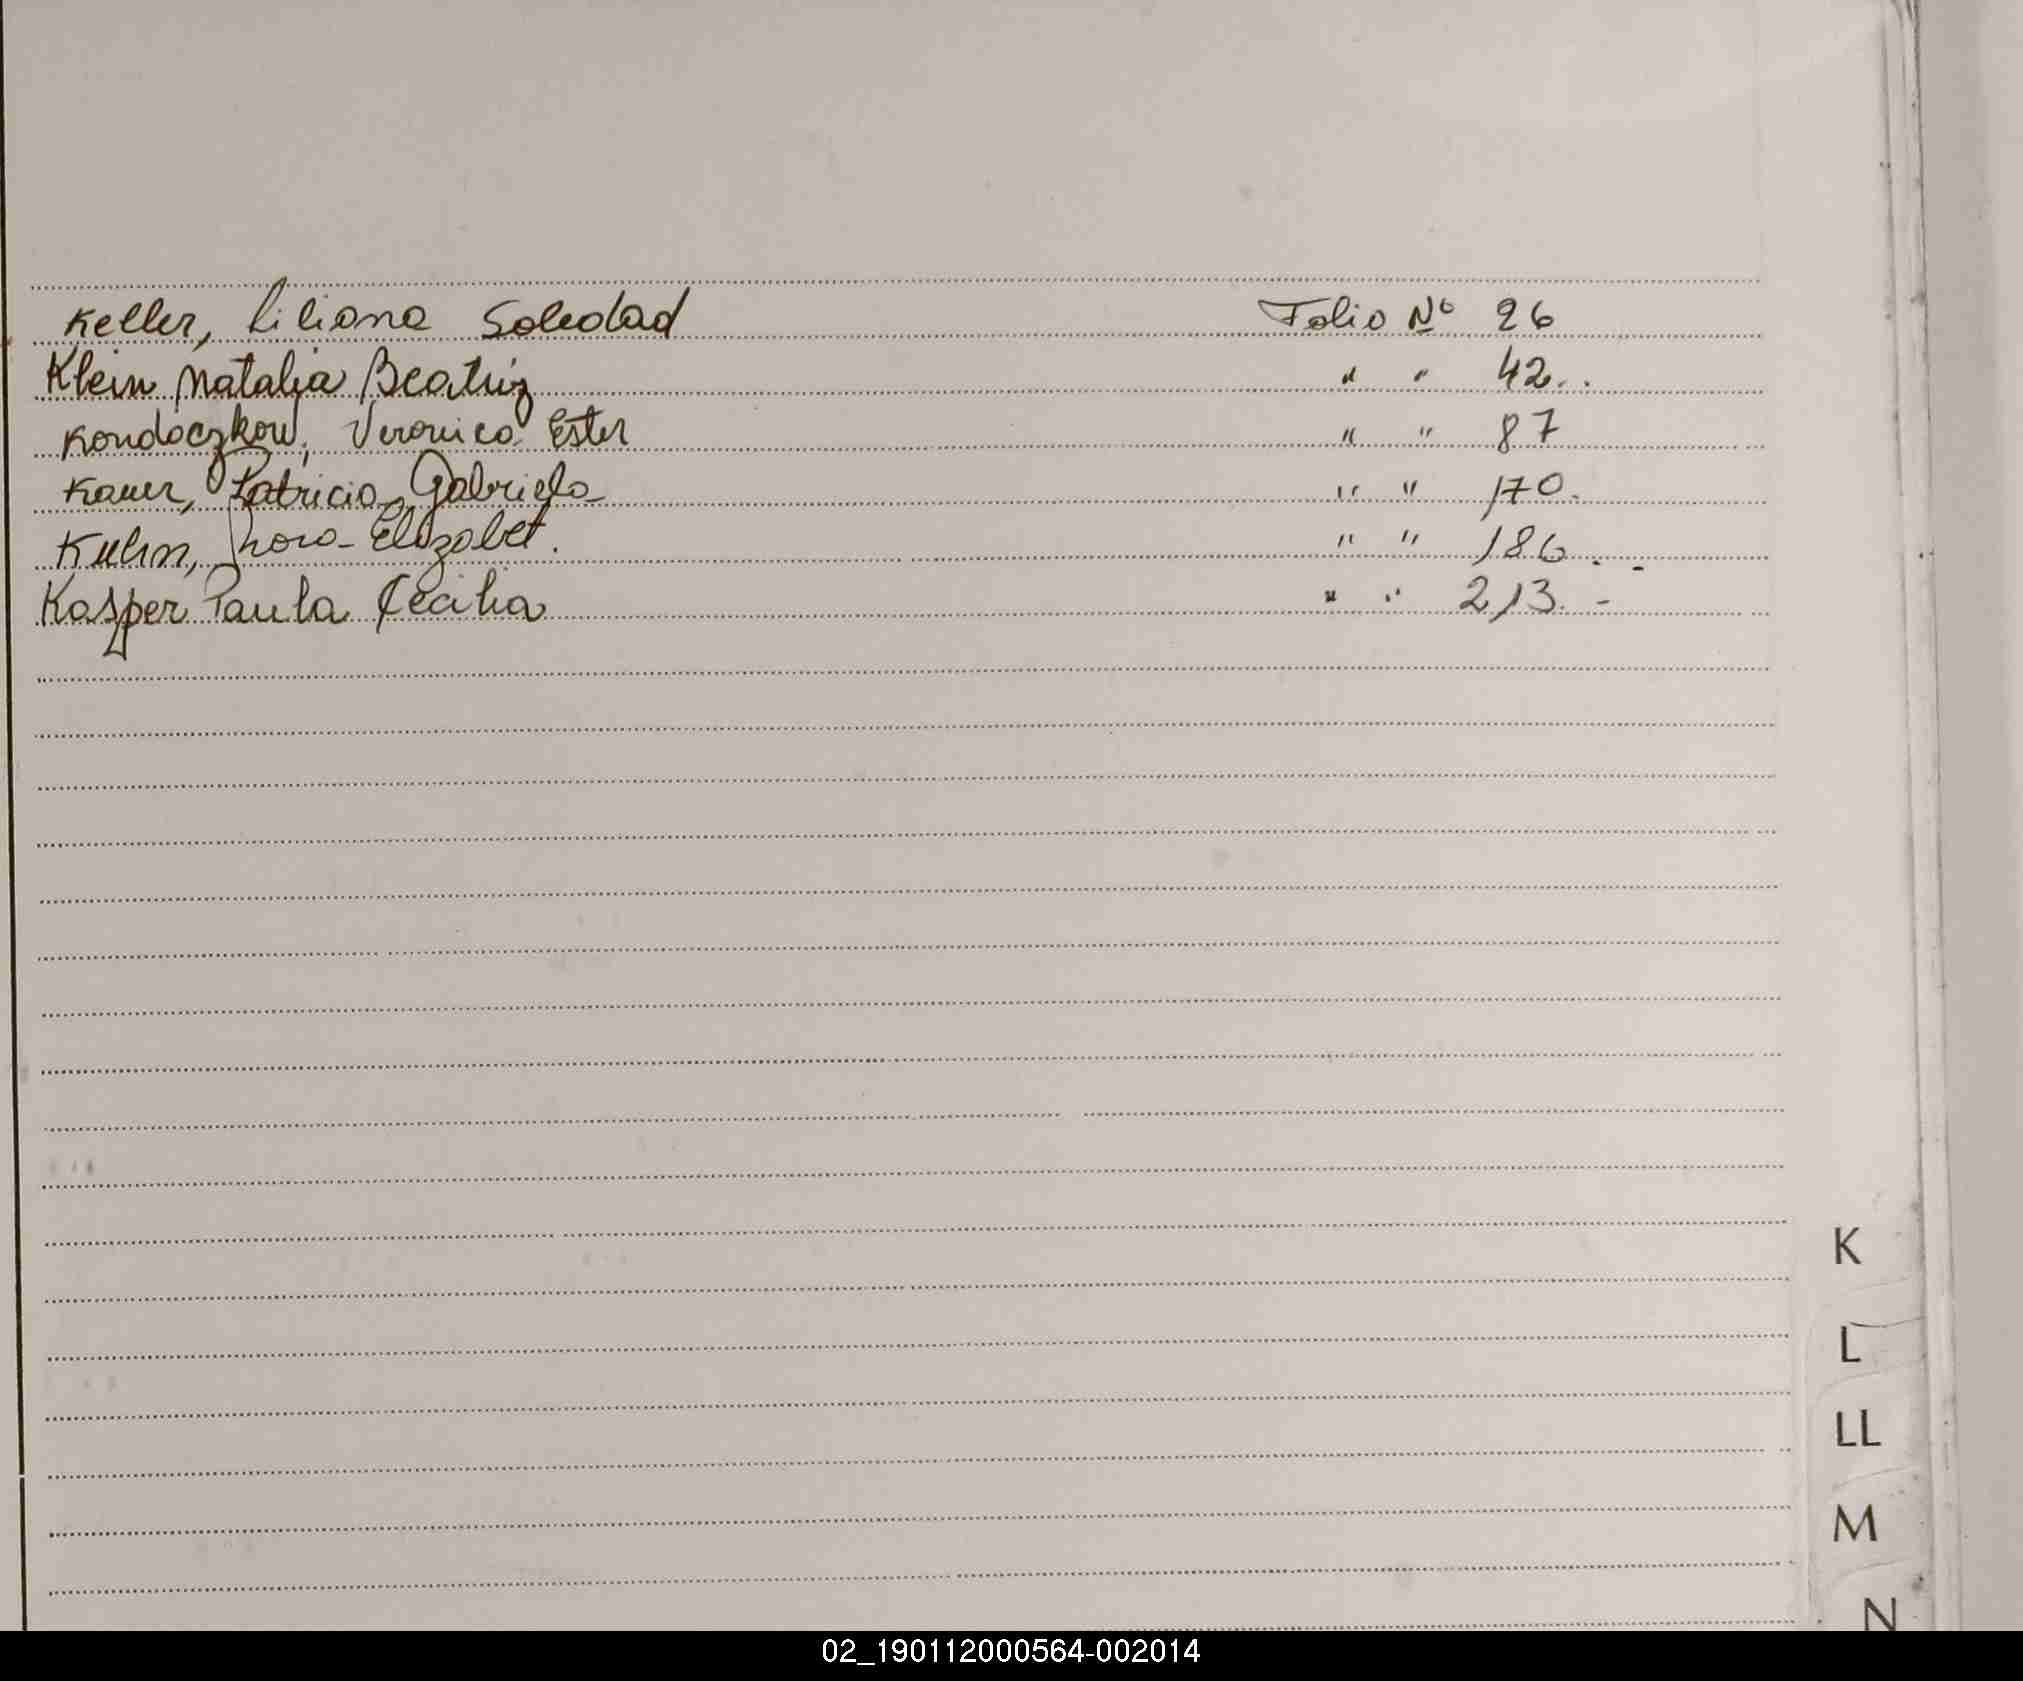 Keller, Liliana Soledad Folio Nº 26
Klein Natalia Beatriz " " 42..
Kondoczkow, Veronica Ester " " 87
Kauer, Patricia Gabriela " " 170.
Kuhn, Elizabet. " " 186. -
Kasper Paula Cecilia " " 213. -
K
L
LL
M
N
02_190112000564-002014